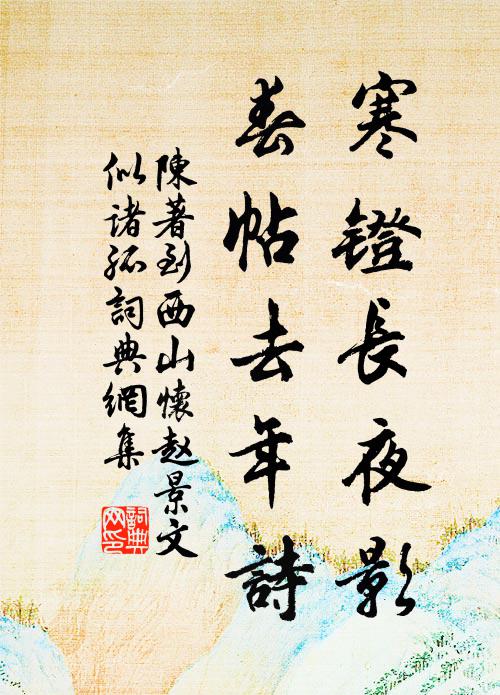 寒镫長夜影
春帖去年詩
陳著到西山懷赵景文
似诸孤詞典網集
詞典网印